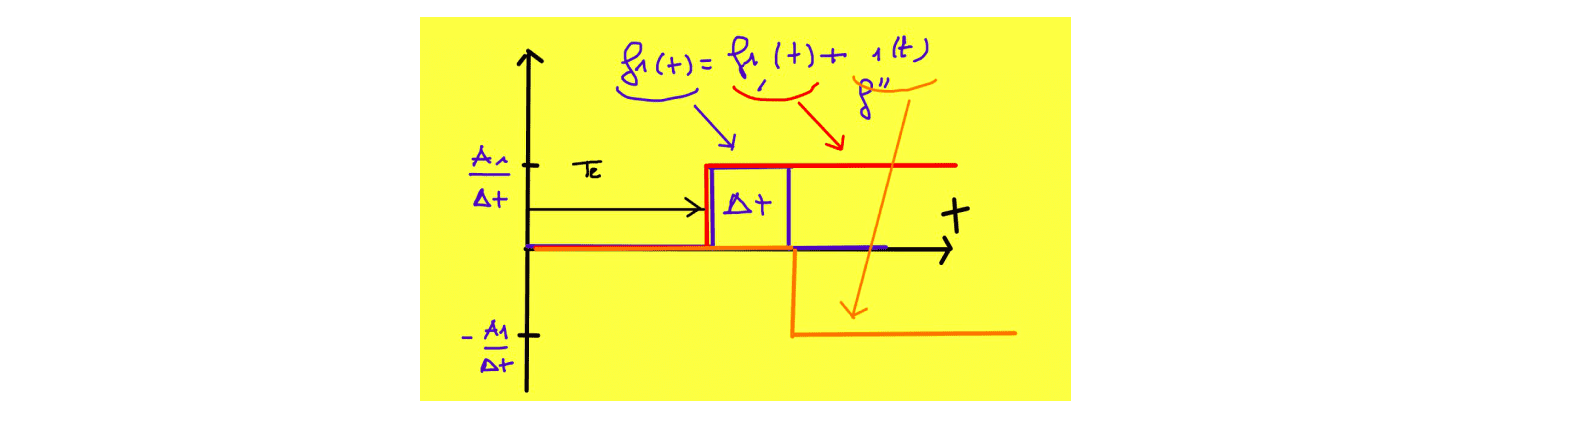 f1(t) = f1'(t) + f1''(t)
A1
Δt
Te
Δt
t
- A1
Δt